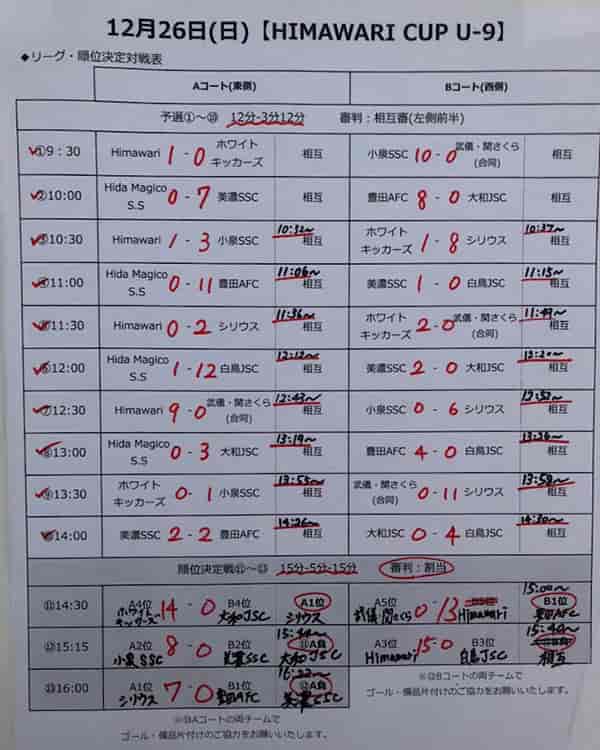 12月26日(日)【HIMAWARI CUP U-9】
◆リーグ・順位決定対戦表
Aコート(東側) Bコート(西側)
予選①～⑩ 12分-3分12分 審判：相互審(左側前半)
①9：30 Himawari 1 - 0 ホワイトキッカーズ 相互 小泉SSC 10 - 0 武儀・関さくら(合同) 相互
②10:00 Hida Magico S.S 0 - 7 美濃SSC 相互 豊田AFC 8 - 0 大和JSC 相互
③10:30 Himawari 1 - 3 小泉SSC 10:32～ 相互 ホワイトキッカーズ 1 - 8 シリウス 10:37～ 相互
④11:00 Hida Magico S.S 0 - 11 豊田AFC 11:06～ 相互 美濃SSC 1 - 0 白鳥JSC 11:15～ 相互
⑤11:30 Himawari 0 - 2 シリウス 11:36～ 相互 ホワイトキッカーズ 2 - 0 武儀・関さくら(合同) 11:49～ 相互
⑥12:00 Hida Magico S.S 1 - 12 白鳥JSC 12:12～ 相互 美濃SSC 2 - 0 大和JSC 12:20～ 相互
⑦12:30 Himawari 9 - 0 武儀・関さくら(合同) 12:43～ 相互 小泉SSC 0 - 6 シリウス 12:52～ 相互
⑧13:00 Hida Magico S.S 0 - 3 大和JSC 13:19～ 相互 豊田AFC 4 - 0 白鳥JSC 13:26～ 相互
⑨13:30 ホワイトキッカーズ 0 - 1 小泉SSC 13:53～ 相互 武儀・関さくら(合同) 0 - 11 シリウス 13:58～ 相互
⑩14:00 美濃SSC 2 - 2 豊田AFC 14:26～ 相互 大和JSC 0 - 4 白鳥JSC 14:30～ 相互
順位決定戦⑪～⑬ 15分-5分-15分 審判：割当
15:00～
⑪14:30 A4位 ホワイトキッカーズ 14 - 0 B4位 大和JSC A1位 シリウス A5位 武儀・関さくら 0 - 13 Himawari B1位 豊田AFC
⑫15:15 A2位 小泉SSC 8 - 0 B2位 美濃SSC 15:44～ ⑪A負 大和JSC A3位 Himawari 15 - 0 B3位 白鳥JSC 15:40～ 相互
⑬16:00 A1位 シリウス 7 - 0 B1位 豊田AFC 16:22～ ⑫A負 美濃SSC
※⑬Aコートの両チームで
ゴール・備品片付けのご協力をお願いいたします。
※⑫Bコートの両チームで
ゴール・備品片付けのご協力をお願いいたします。